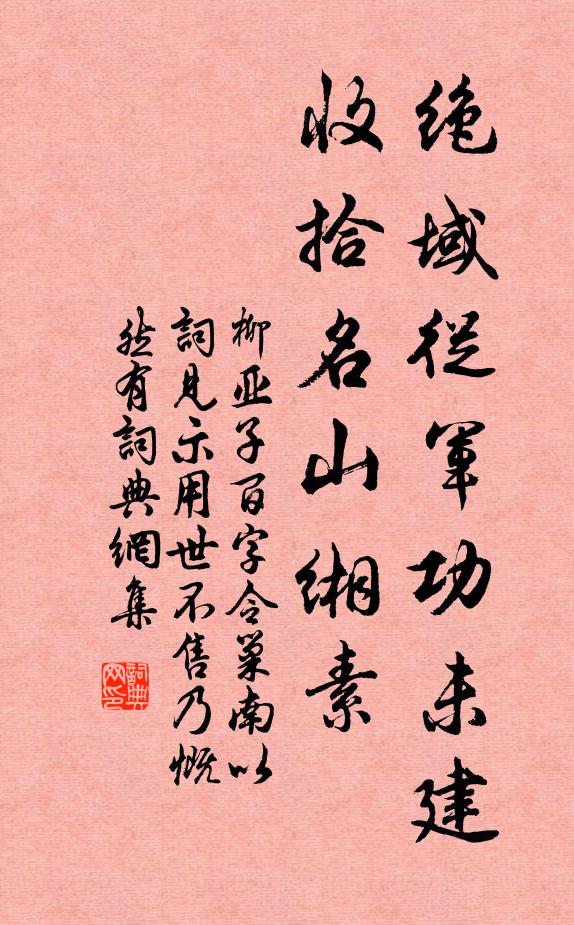 绝域從軍功未建
收拾名山缃素
柳亚子百字令巢南以
詞見示用世不售乃慨
然有詞典網集
詞典网印